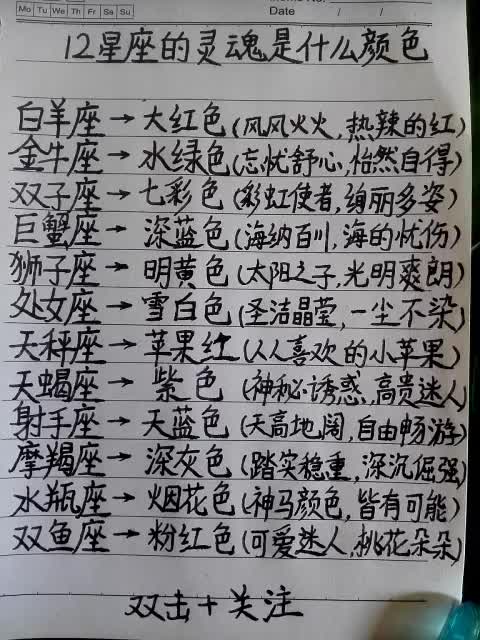 Mo Tu We Th Fr Sa Su
Date / /
12星座的灵魂是什么颜色
白羊座→大红色(风风火火,热辣的红)
金牛座→水绿色(忘忧舒心,怡然自得)
双子座→七彩色(彩虹使者,绚丽多姿)
巨蟹座→深蓝色(海纳百川,海的忧伤)
狮子座→明黄色(太阳之子,光明爽朗)
处女座→雪白色(圣洁晶莹,一尘不染)
天秤座→苹果红(人人喜欢的小苹果)
天蝎座→紫色(神秘诱惑,高贵迷人)
射手座→天蓝色(天高地阔,自由畅游)
摩羯座→深灰色(踏实稳重,深沉倔强)
水瓶座→烟花色(神马颜色,皆有可能)
双鱼座→粉红色(可爱迷人,桃花朵朵)
双击+关注